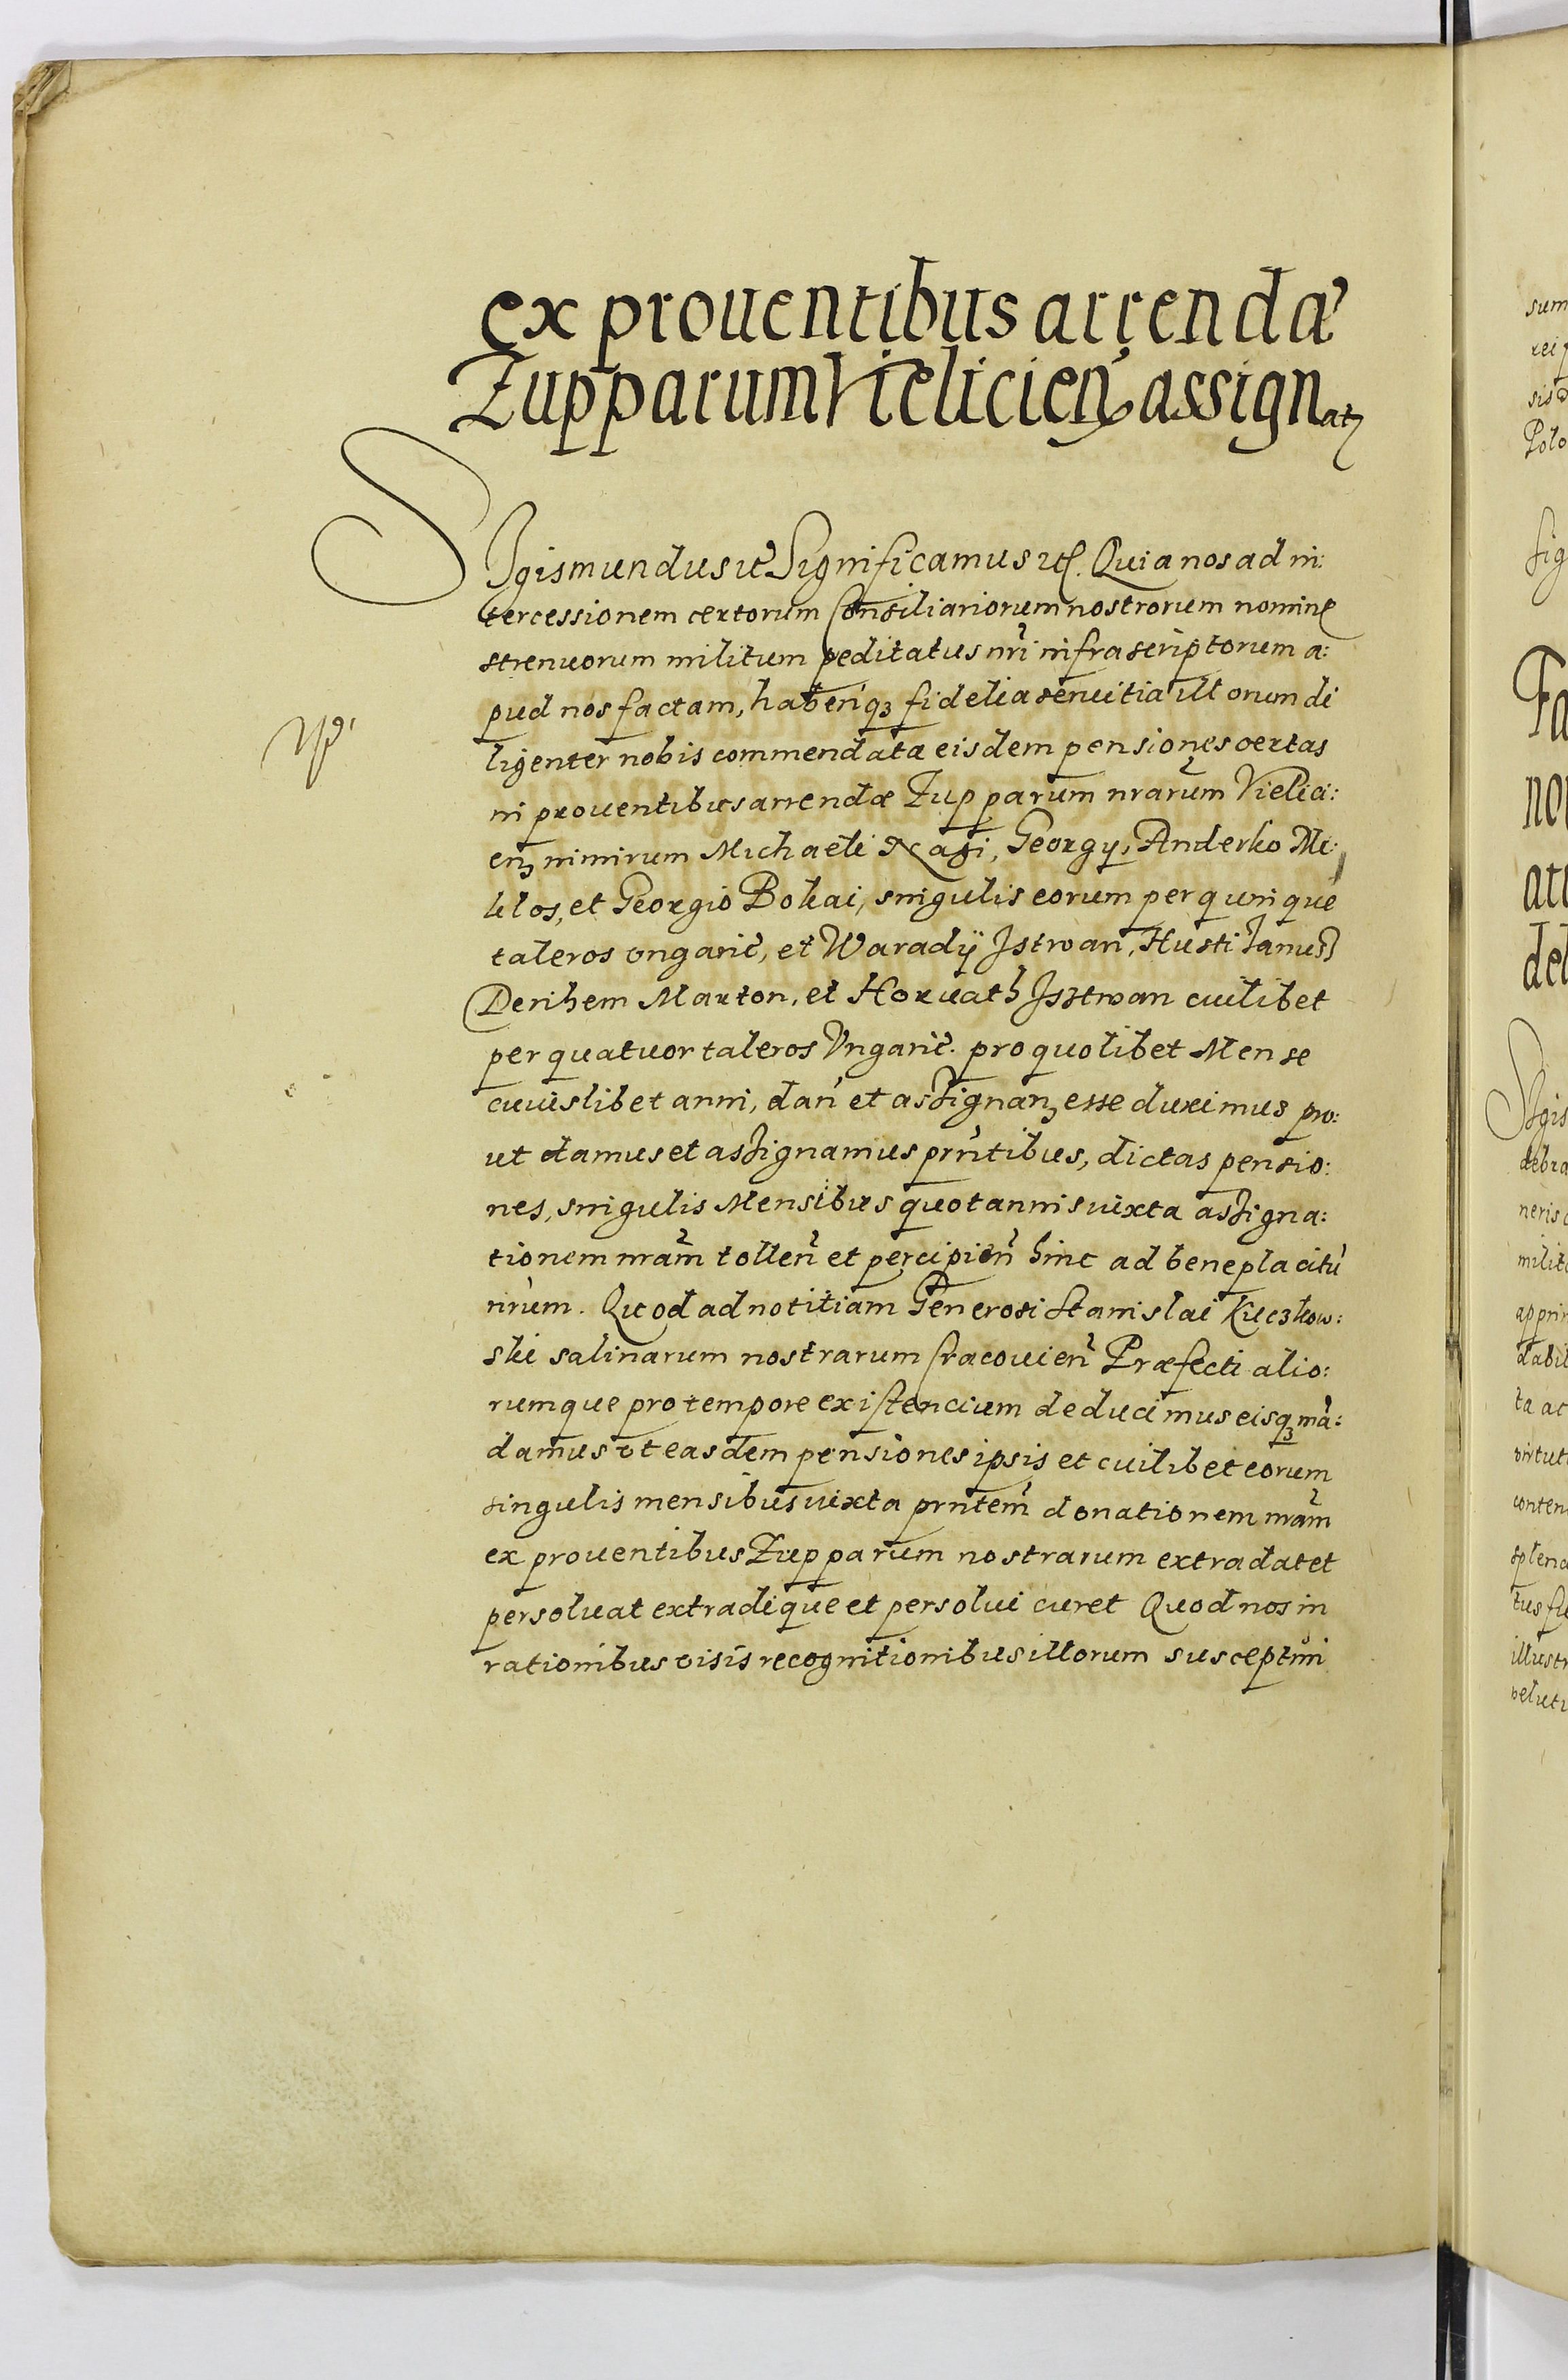 ex prouentibus arrendæ
Zupparum Vielicien̄ assignatʒ
SIgismundus etc̄ Significamus etc. Quia nos ad in:
tercessionem certorum Consiliariorum nostrorum nomine
strenuorum militum peditatus nr̄i infrascriptorum a:
pud nos factam, haben̄qʒ fidelia seruitia illorum di
ligenter nobis commendata eisdem pensiones certas
in prouentibus arrendæ Zupparum nr̄arum Vielici:
enʒ nimirum Michaeli Nagi, Georgy, Anderko Mi:
klos, et Georgio Bokai, singulis eorum per quinque
taleros vngaric̄, et Waradÿ Istwan, Husti Ianuss
Derihem Marton, et Horuath Isstwan cuilibet
per quatuor taleros Vngaric̄. pro quolibet Mense
cuiuslibet anni, dan̄ et assignanʒ esse duximus pro:
ut damus et assignamus prn̄tibus, dictas pensio:
nes, singulis Mensibus quotannis iuxta assigna:
tionem nr̄am tollen̄ et percipien̄ hinc ad beneplacitū
nr̄um. Quod ad notitiam Generosi Stanislai Kuczkow:
ski salinarum nostrarum Cracouien̄ Præfecti alio:
rumque pro tempore existencium deducimus eisqʒ mā:
damus vt easdem pensiones ipsis et cuilibet eorum
singulis mensibus iuxta prn̄tem donationem nr̄am
ex prouentibus Zupparum nostrarum extradat et
persoluat extradique et persolui curet Quod nos in
rationibus visis recognitionibus illorum suscepturi